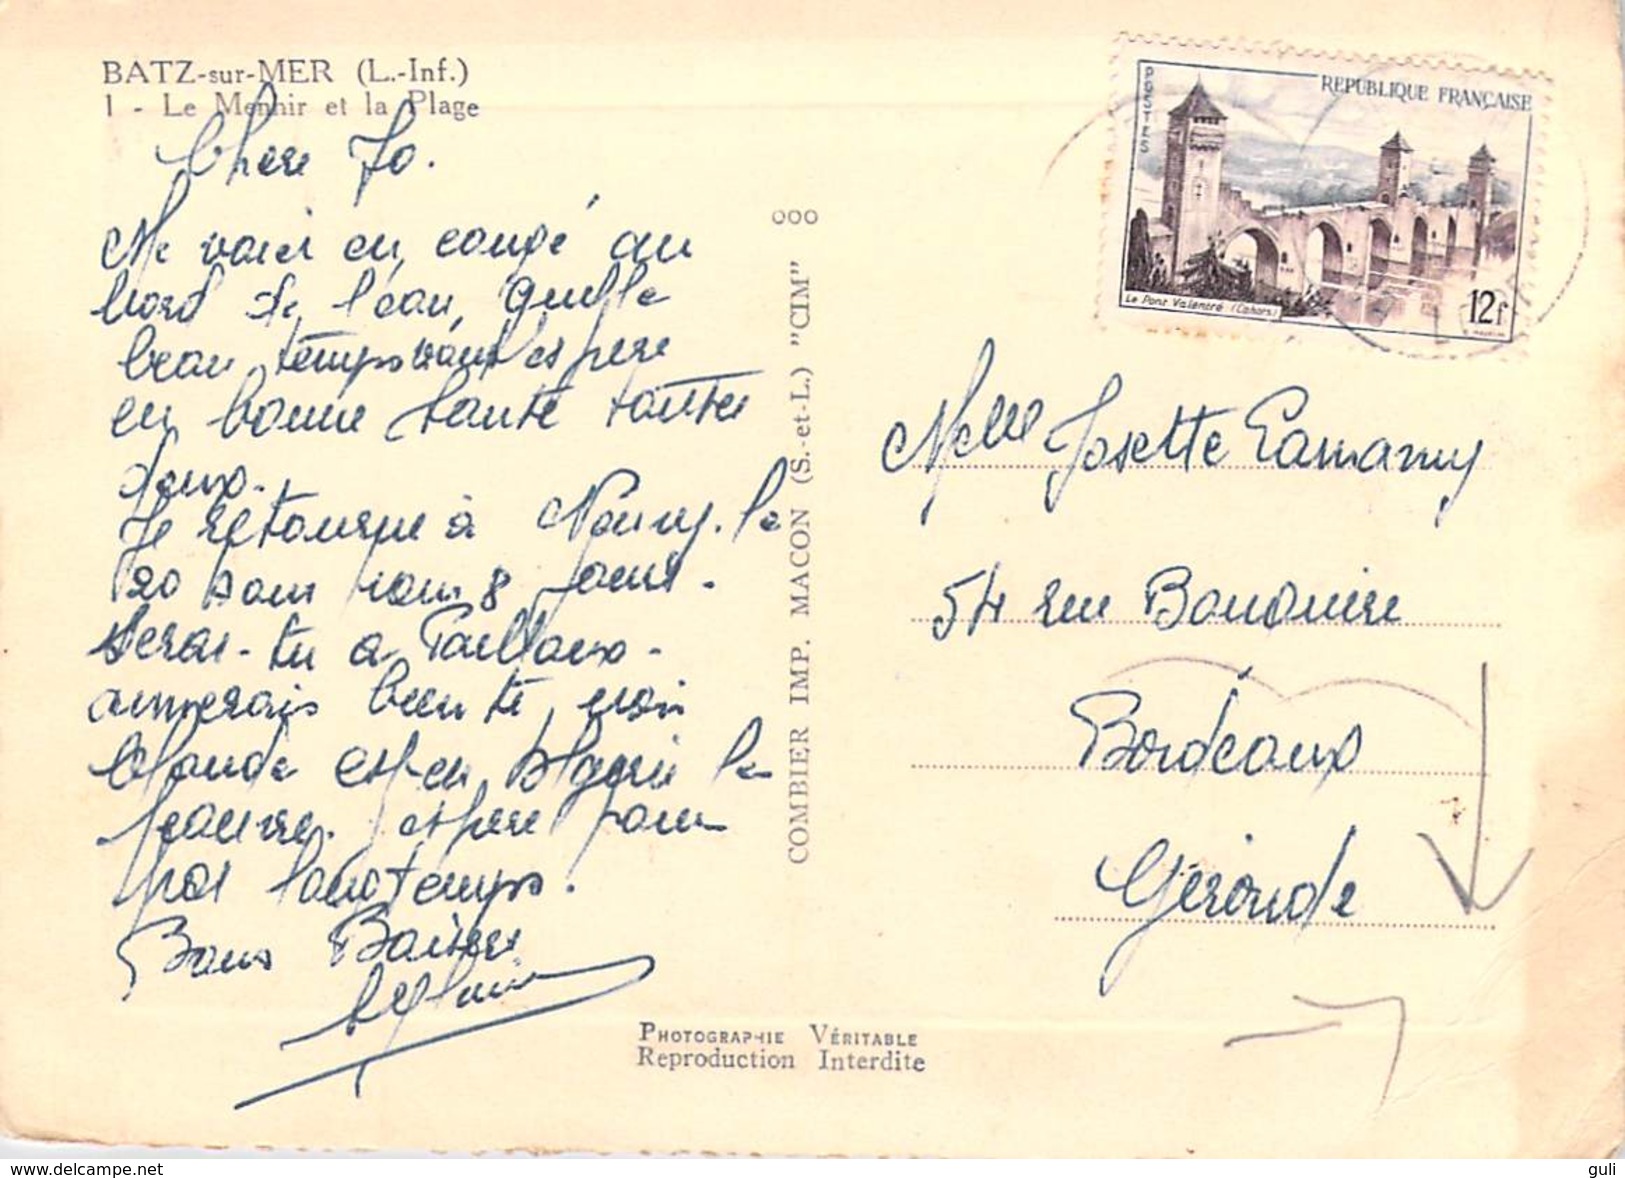 BATZ-sur-MER (L.-Inf.)
1 - Le Menhir et la Plage
Chere Jo.
Me voici en congé au
bord de l'eau, quelle
beau temps espere
en bonne santé toutes
deux.
Je retourne à Nancy le
20 pour 8 jours.
Serai-tu a
aimerais bien te voir
Claude est en Algerie le
pauvre. espere pour
pas longtemps.
Bons Baisers
REPUBLIQUE FRANÇAISE
POSTES
Le Pont Valentré (Cahors)
12f
ooo
COMBIER IMP. MACON (S.-et-L.) "CIM"
Melle Josette Lamarny
54 rue Bouquiere
Bordeaux
Gironde
PHOTOGRAPHIE VÉRITABLE
Reproduction Interdite
delcampe.net
guli